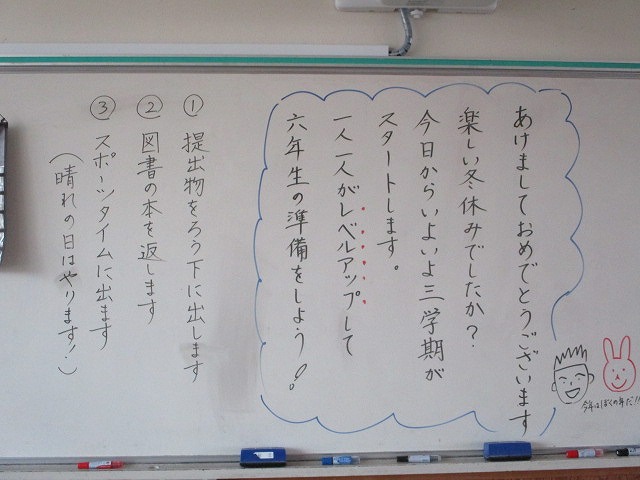 あけましておめでとうございます
楽しい冬休みでしたか?
今日からいよいよ三学期が
スタートします。
一人一人がレベルアップして
六年生の準備をしよう!
① 提出物をろう下に出します
② 図書の本を返します
③ スポーツタイムに出ます
(晴れの日はやります!)
今年はぼくの年だ!!